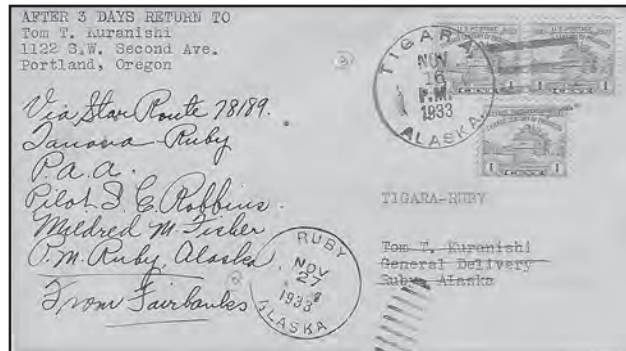 AFTER 3 DAYS RETURN TO
Tom T. Kuranishi
1122 S.W. Second Ave.
Portland, Oregon
Via Star Route 78189.
Tanana Ruby
P.A.A.
Pilot S. E. Robbins.
Mildred M. Fisher
P.M. Ruby, Alaska
From Fairbanks
TIGARA
NOV
16
P.M.
1933
ALASKA.
RUBY
NOV
27
1933
ALASKA
U.S. POSTAGE
1
1
U.S. POSTAGE
1
TIGARA-RUBY
Tom T. Kuranishi
General Delivery
Ruby Alaska